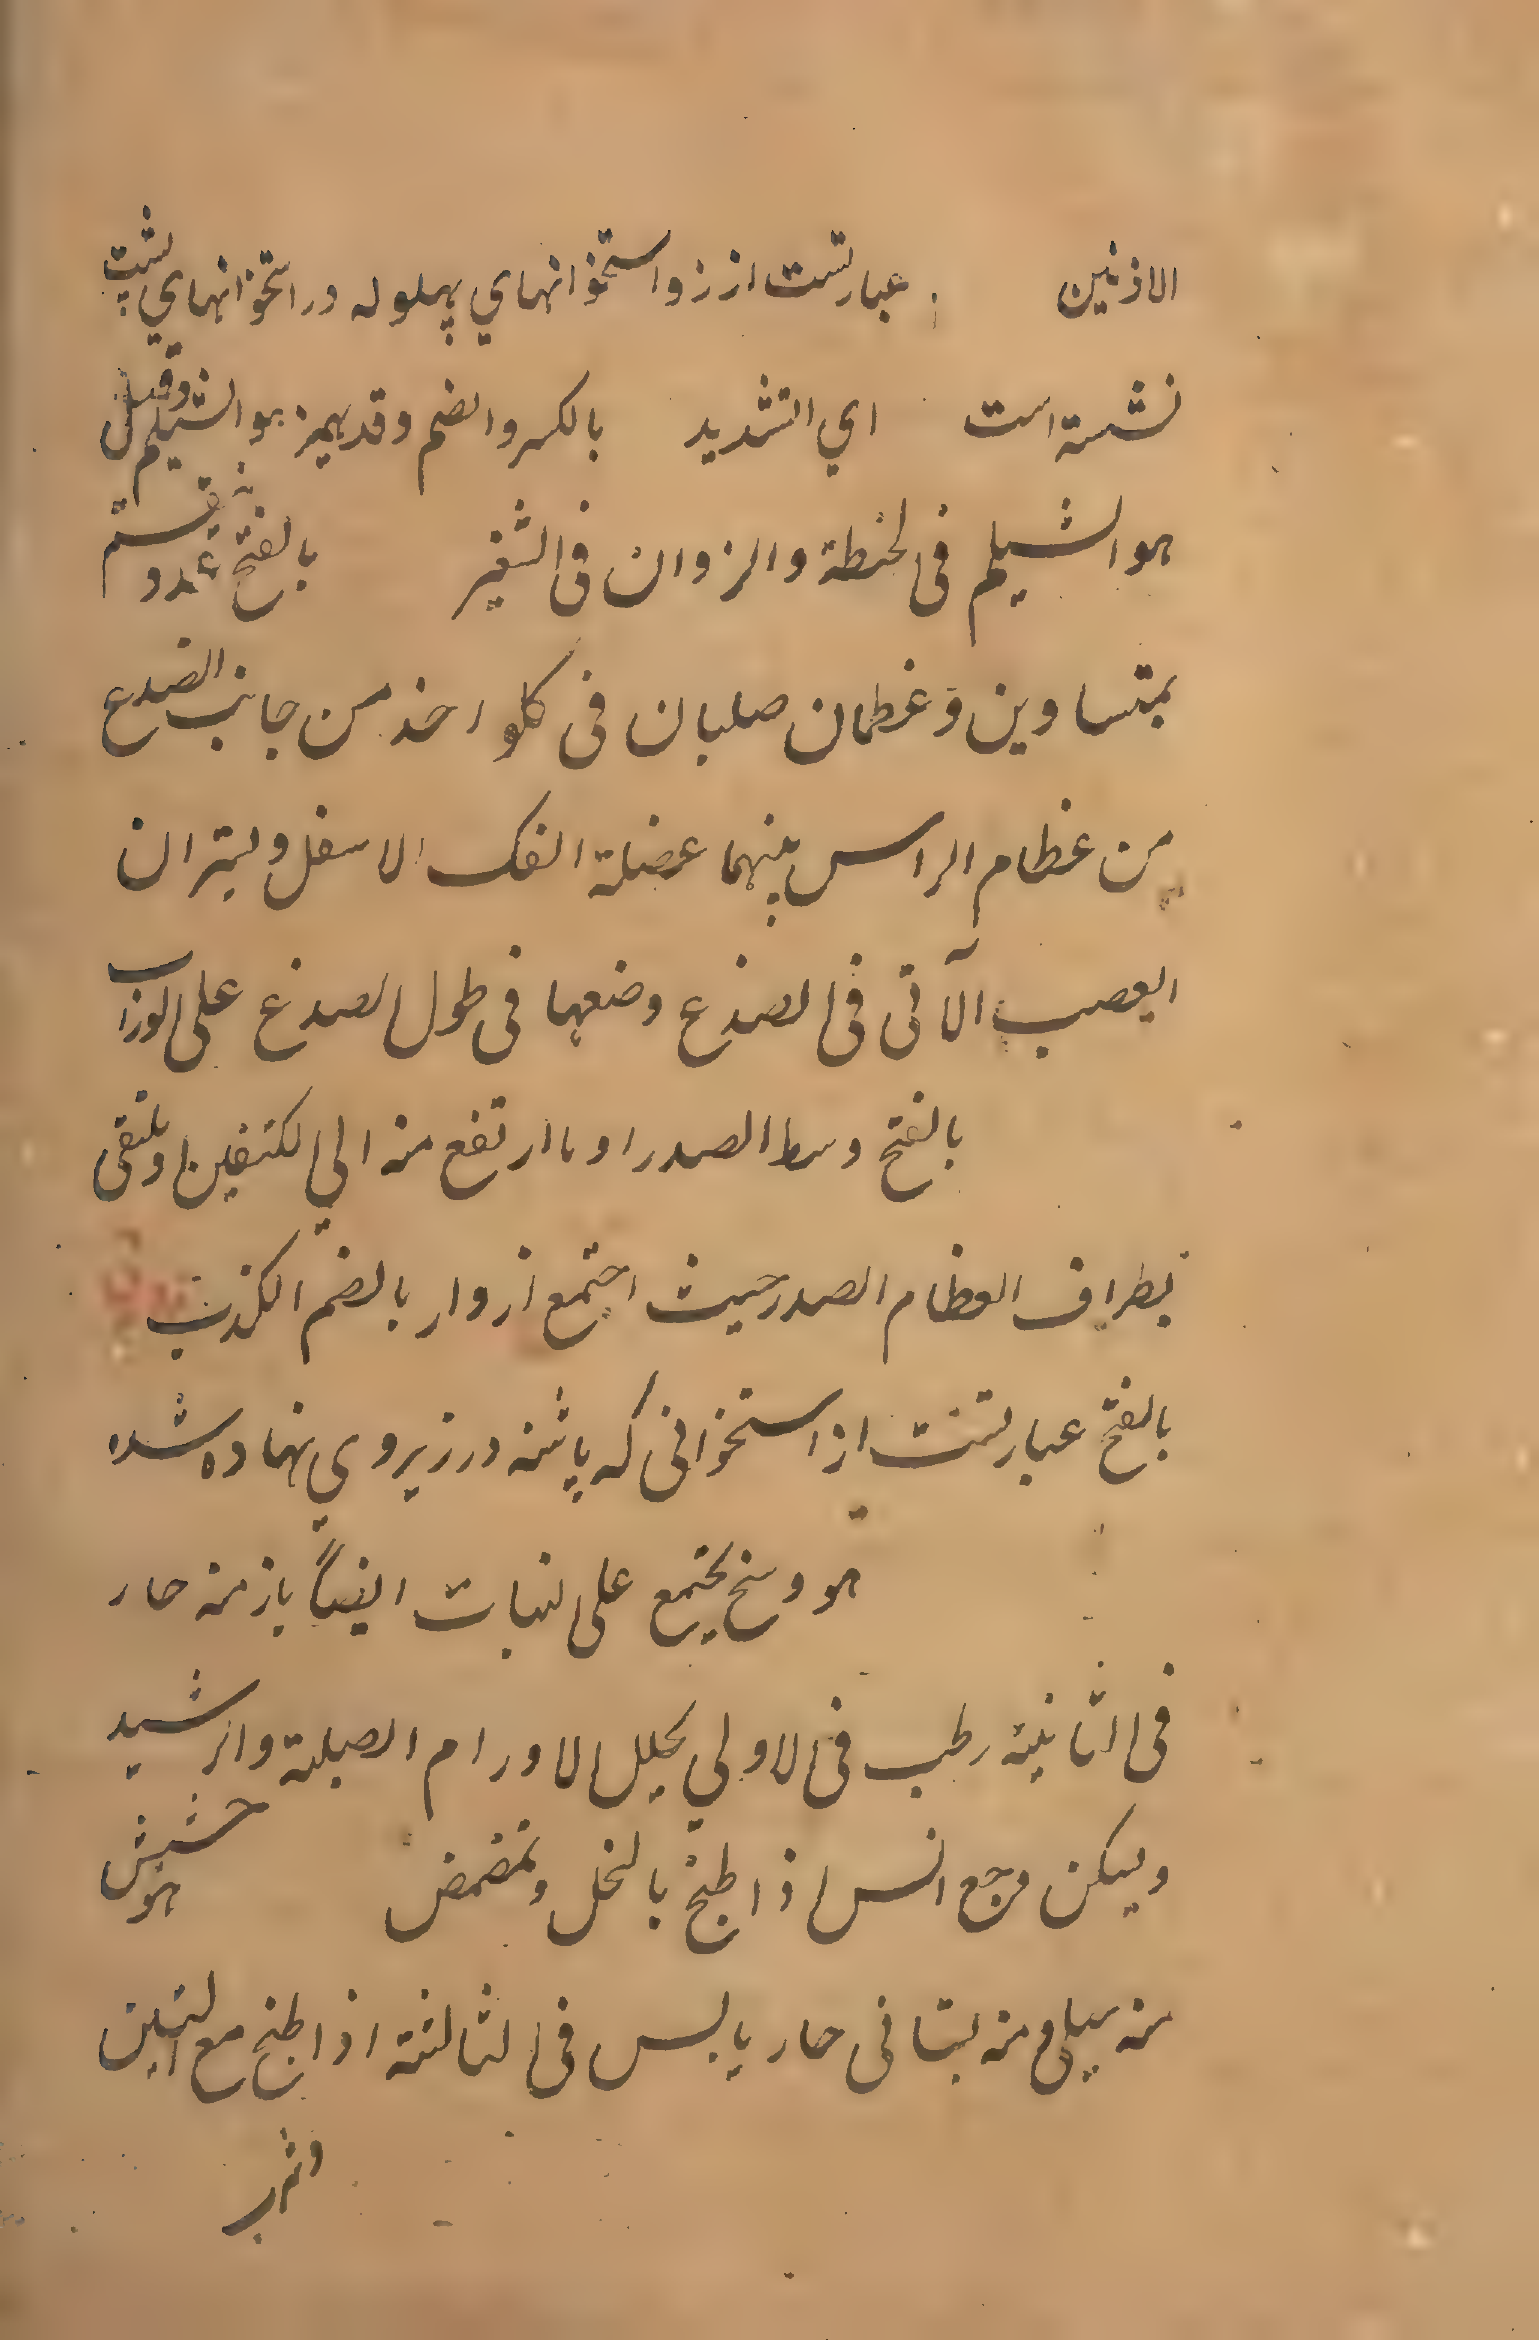 الاذنين عبارتست از زواستخوانهاي پهلو له در استخوانهاي پشت
نشسته است اي التشديد بالكسر والضم وقد يهمز هو الشيلم وقيل
هو الشيلم فى الحنطة والزوان فى الشغير بالفتح غدد و
بمتساوين وغطمان صلبان فى كلو احد من جانب الصدع
من غظام الراس بينهما عضلة الفك الاسفل ويتران
العصب الآتى فى الصدغ وضعها فى طول الصدغ على الوراب
بالفتح وسط الصدر او ما ارتفع منه الي الكتفين او ملتقى
بطراف العظام الصدر حيث اجتمع ازوار بالضم الكذب
بالفتح عبارتست از استخوانى كه پاشنه در زير وي نهاده شده
هو وسخ يجتمع على لنبات ايضاً بازمنه حار
فى الثانية رطب فى الاولي يحلل الاورام الصلبة والرشيد
ويسكن وجع انس اذا طبخ بالخل وتمضمض هو حشيش
منه بيلى ومنه بستانى حار يابس فى الثالثة اذا طبخ مع التين
وشرب